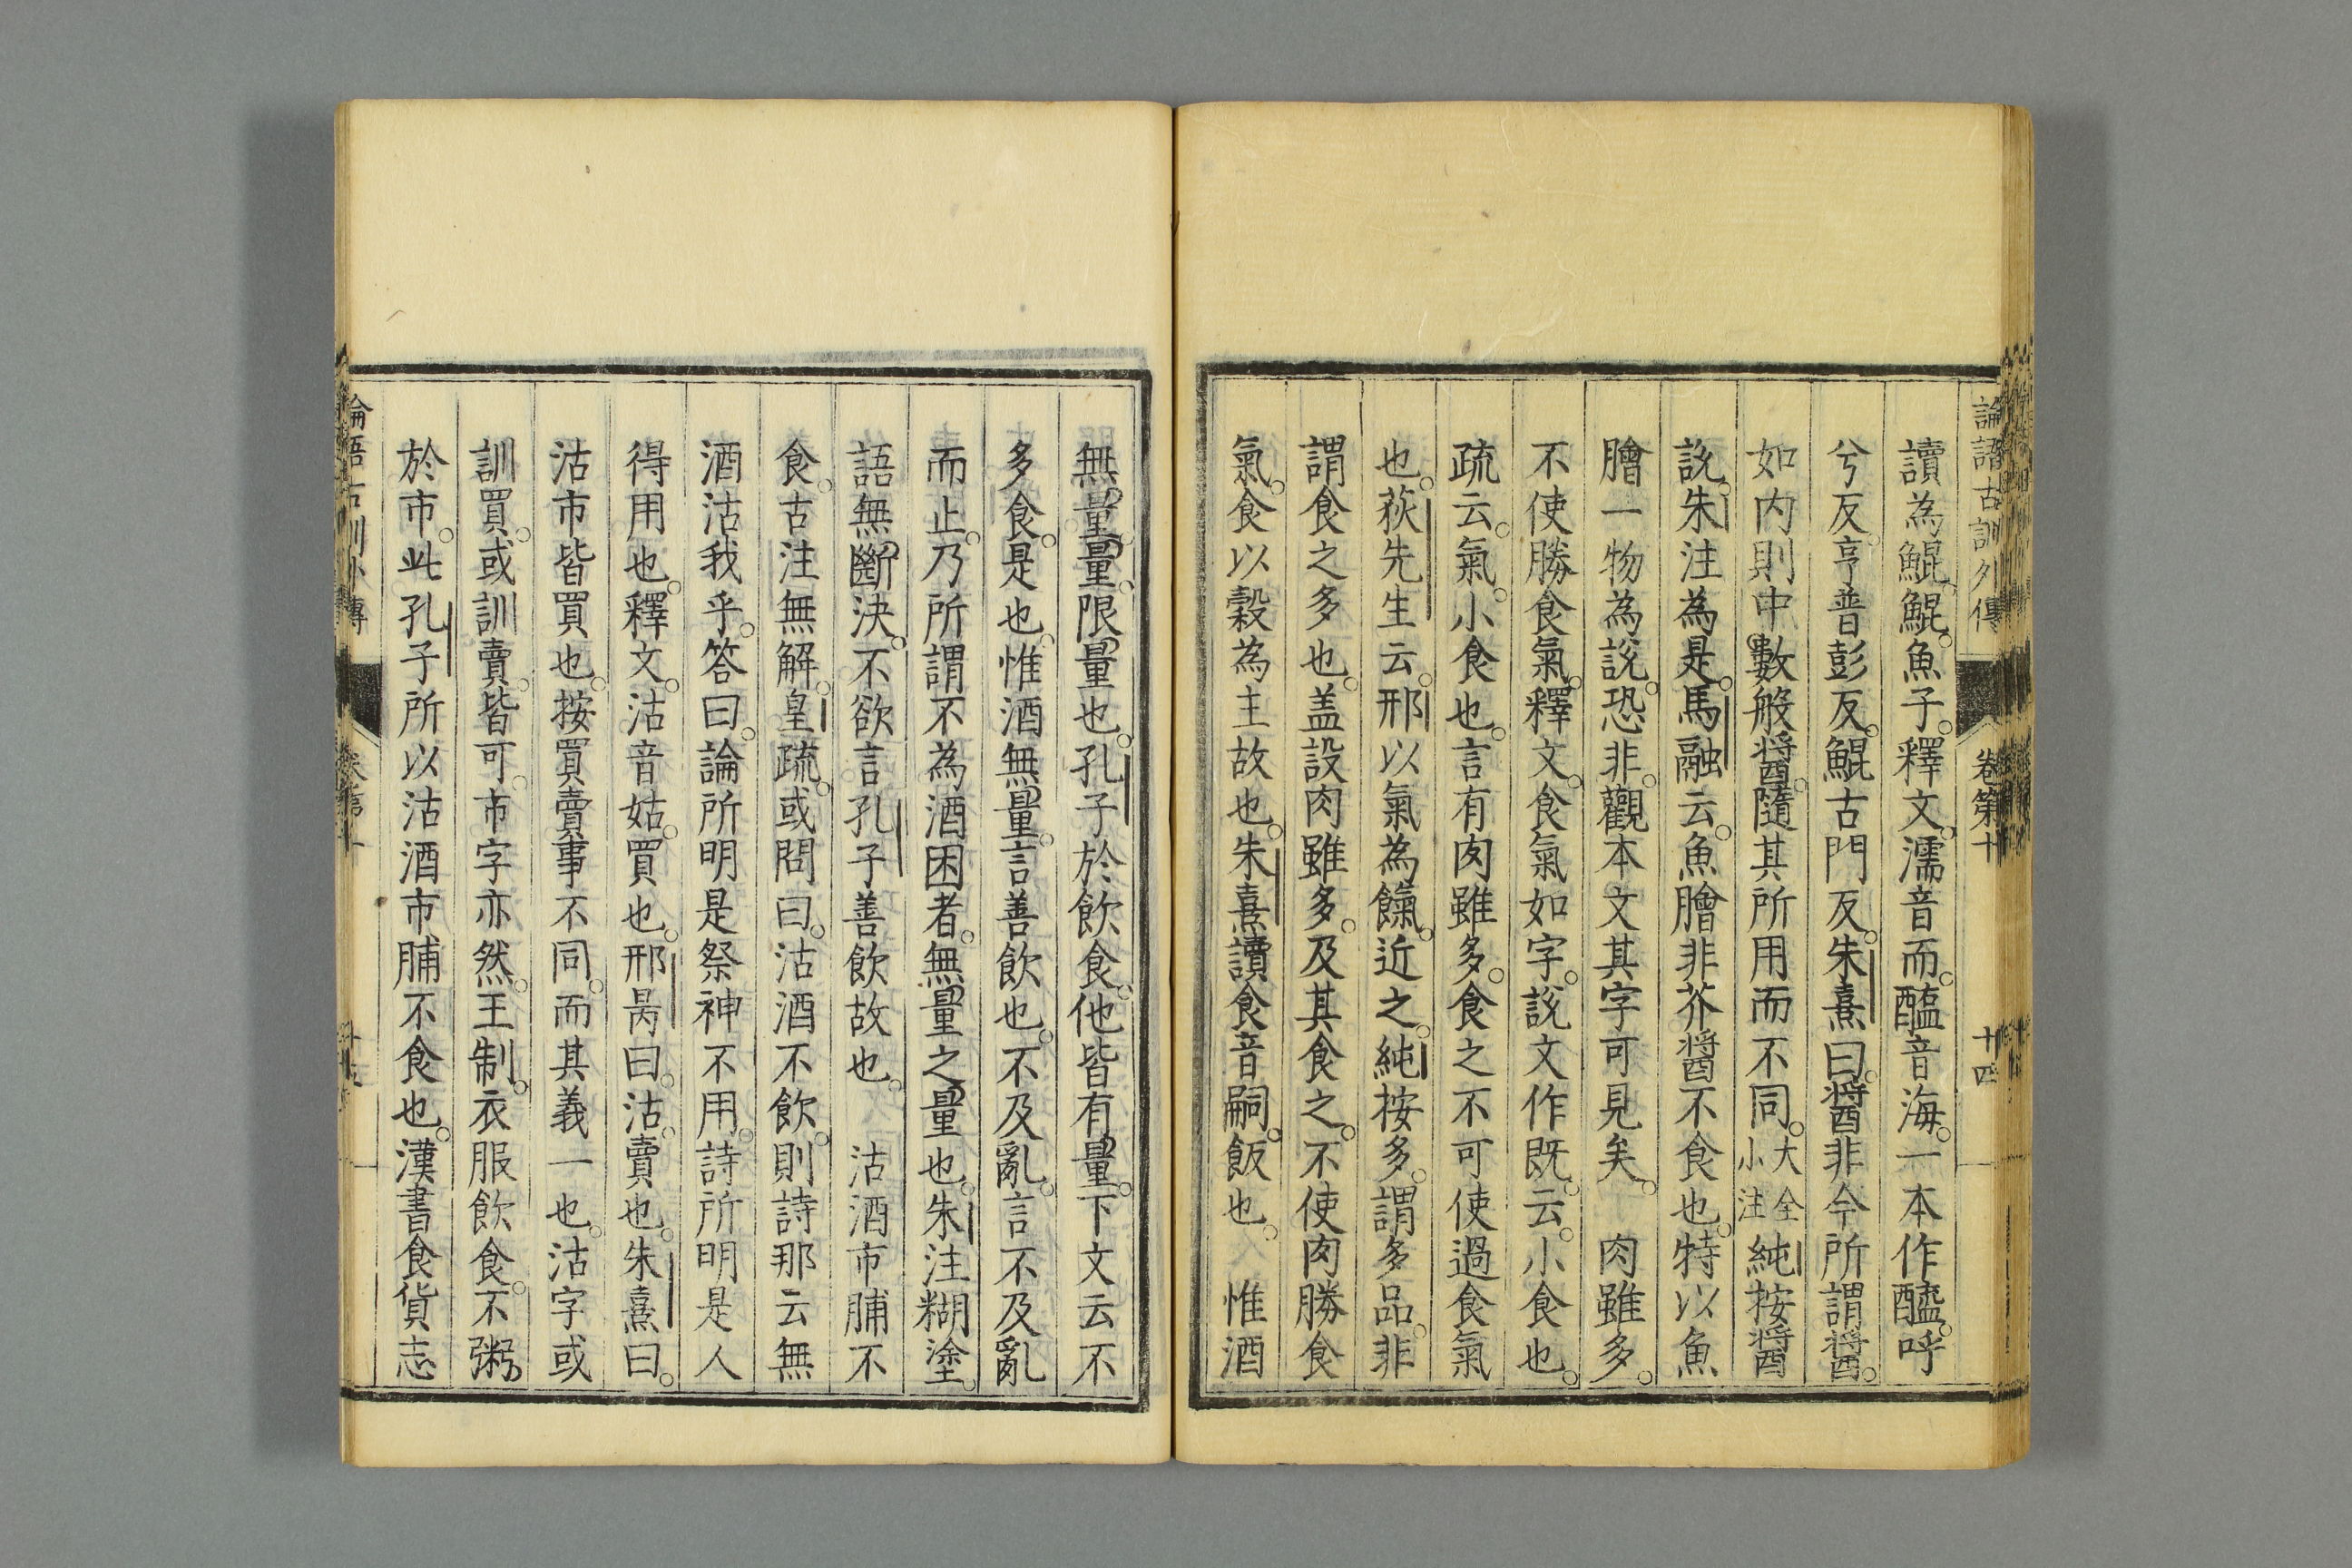 論語古訓外傳 卷第十 十四
讀為鯤。鯤。魚子。釋文。濡音而。醢音海。一本作醯。呼
兮反。亨普彭反。鯤古門反。朱熹曰。醬非今所謂醬。
如内則中數般醬。隨其所用而不同。大全小注純按醬
説。朱注為是。馬融云。魚膾非芥醬不食也。特以魚
膾一物為説。恐非。觀本文其字可見矣。 肉雖多。
不使勝食氣。釋文。食氣如字。説文作既。云。小食也。
疏云。氣。小食也。言有肉雖多。食之不可使過食氣
也。荻先生云。邢以氣為餼。近之。純按多。謂多品。非
謂食之多也。盖設肉雖多。及其食之。不使肉勝食
氣。食以穀為主故也。朱熹讀食音嗣。飯也。 惟酒
無量。量。限量也。孔子於飲食。他皆有量。下文云不
多食。是也。惟酒無量。言善飲也。不及亂。言不及亂
而止。乃所謂不為酒困者。無量之量也。朱注糊塗。
語無斷決。不欲言孔子善飲故也。 沽酒市脯不
食。古注無解。皇疏。或問曰。沽酒不飲。則詩那云無
酒沽我乎。答曰。論所明是祭神不用。詩所明是人
得用也。釋文。沽音姑。買也。邢昺曰。沽。賣也。朱熹曰。
沽市皆買也。按買賣事不同。而其義一也。沽字或
訓買。或訓賣。皆可。市字亦然。王制。衣服飲食。不粥
於市。此孔子所以沽酒市脯不食也。漢書食貨志
論語古訓外傳